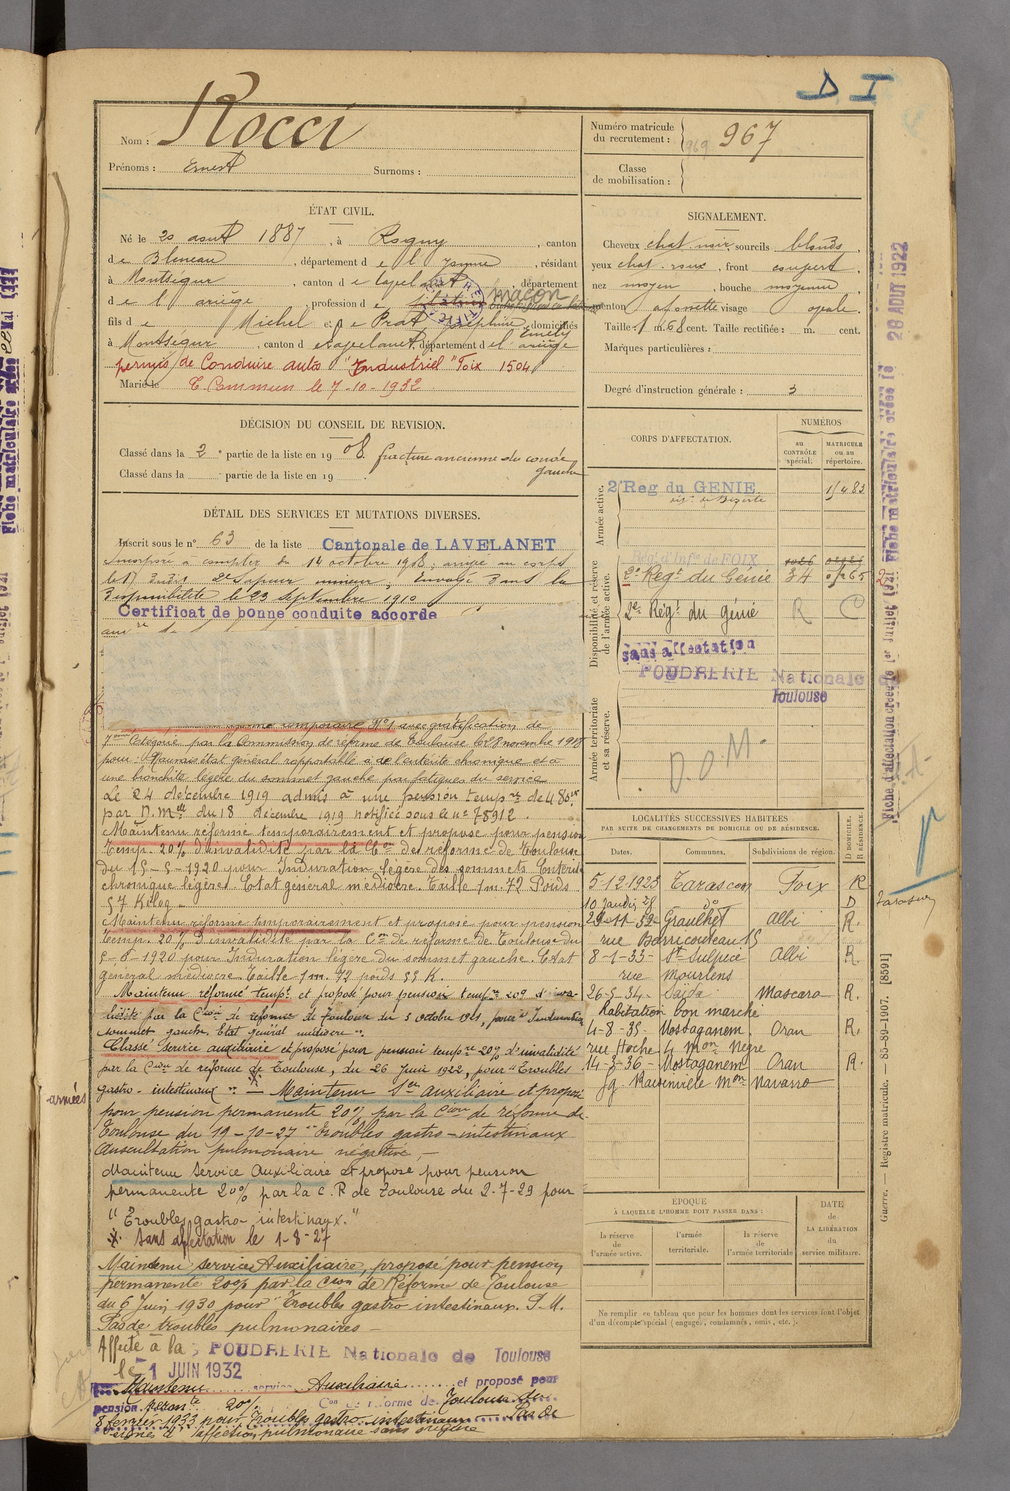 D I
Nom : Rocci
Prénoms : Ernest Surnoms :
Numéro matricule
du recrutement : 969 967
Classe
de mobilisation :
ÉTAT CIVIL.
Né le 20 août 1887, à Rogny, canton
de Bleneau, département de l'Yonne, résidant
à Montségur, canton de Lavelanet, département
de l'ariège, profession de maçon
fils de Michel et de Prat Joséphine Emély domiciliés
à Montségur, canton de Lavelanet, département de l'ariège
permis de Conduire autos "Industriel" Foix 1504
Marié le E. Commun le 7-10-1932
SIGNALEMENT.
Cheveux chat. noir, sourcils blonds,
yeux chat. roux, front couvert,
nez moyen, bouche moyenne,
menton à fossette visage ovale.
Taille 1 m. 68 cent. Taille rectifiée : m. cent.
Marques particulières :
Degré d'instruction générale : 3
DÉCISION DU CONSEIL DE REVISION.
Classé dans la 2e partie de la liste en 1908. fracture ancienne du coude gauche
Classé dans la partie de la liste en 19 .
DÉTAIL DES SERVICES ET MUTATIONS DIVERSES.
Inscrit sous le n° 63 de la liste Cantonale de LAVELANET
Incorporé à compter du 14 octobre 1908, arrivé au corps
le dit jour 2e Sapeur mineur, envoyé dans la
disponibilité le 23 septembre 1910
Certificat de bonne conduite accordé
réforme temporaire N°1 avec gratification de
7ème Catégorie par la Commission de réforme de Toulouse le 28 novembre 1918
pour : Mauvais état général rapportable à de l'entérite chronique et à
une bronchite légère du sommet gauche par fatigues du service
Le 24 décembre 1919 admis à une pension tempre de 480 fr
par D. Mle du 18 décembre 1919 notifiée sous le n° 78912.
Maintenu réformé temporairement et proposé pour pension
Temp. 20% d'invalidité par la Con de réforme de Toulouse
du 15-5-1920 pour Induration légère des sommets Entérite
chronique légère. Etat général médiocre. Taille 1m.72 Poids
57 Kilog -
Maintenu réformé temporairement et proposé pour pension
Temp. 20% d'invalidité par la Con de réforme de Toulouse du
5-8-1920 pour Induration légère du sommet gauche. Etat
général médiocre. Taille 1m.72 poids 55 K.
Maintenu réformé tempt et proposé pour pension tempre 20% d'inva-
lidité par la Cion de réforme de Toulouse du 5 octobre 1921, pour "Induration
sommet gauche. Etat général médiocre".
Classé service auxiliaire et proposé pour pension tempre 20% d'invalidité
par la Cion de réforme de Toulouse, du 26 Juin 1922, pour "Troubles
gastro-intestinaux". — Maintenu Ser auxiliaire et proposé
pour pension permanente 20% par la Cion de réforme de
Toulouse du 19-10-27 "troubles gastro-intestinaux
Auscultation pulmonaire négative. —
Maintenu Service Auxiliaire et proposé pour pension
permanente 20% par la C.R de Toulouse du 2-7-29 pour
"Troubles gastro-intestinaux."
* Sans affectation le 1-8-27
Maintenu service Auxiliaire, proposé pour pension
permanente 20% par la Cion de Réforme de Toulouse
du 6 Juin 1930 pour "Troubles gastro intestinaux. P.M.
Pas de troubles pulmonaires —
Affecté à la POUDRERIE Nationale de Toulouse
le -1 JUIN 1932
Maintenu service Auxiliaire et proposé pour
pension perm te 20% Con de réforme de Toulouse du
8 février 1933 pour Troubles gastro intestinaux Pas de
signes d'affection pulmonaire sans origine
CORPS D'AFFECTATION.
NUMÉROS
au contrôle spécial.
matricule ou au répertoire.
Armée active.
2e Reg du GENIE 1/483
Disponibilité et réserve de l'armée active.
Rég. d'Infie de FOIX
2e Regt du Génie 34
2e Régt du génie R C
sans affectation
POUDRERIE Nationale de
Toulouse
Armée territoriale et sa réserve.
D.O.M.
LOCALITÉS SUCCESSIVES HABITÉES
PAR SUITE DE CHANGEMENTS DE DOMICILE OU DE RÉSIDENCE.
Dates. Communes. Subdivisions de région. D DOMICILE. R RÉSIDENCE.
5-12-1923 Tarascon Foix R
10 Janvier 28 do D Tarascon
29-11-32- Graulhet Albi R.
8-1-33- St Sulpice Albi R
rue Mourlens
26-5-34- Saïda Mascara R.
habitation bon marché
4-8-35- Mostaganem. Oran R.
rue Hoche 4 mon Nègre
14-3-36- Mostaganem Oran R.
fg. Raisinville mon Navarro
ÉPOQUE
À LAQUELLE L'HOMME DOIT PASSER DANS :
la réserve de l'armée active.
l'armée territoriale.
la réserve de l'armée territoriale
DATE de LA LIBÉRATION du service militaire.
Ne remplir ce tableau que pour les hommes dont les services font l'objet
d'un décompte spécial (engagés, condamnés, omis, etc.).
Guerre. — Registre matricule. — 83-89-1907. [8591]
28 AOUT 1922
armées